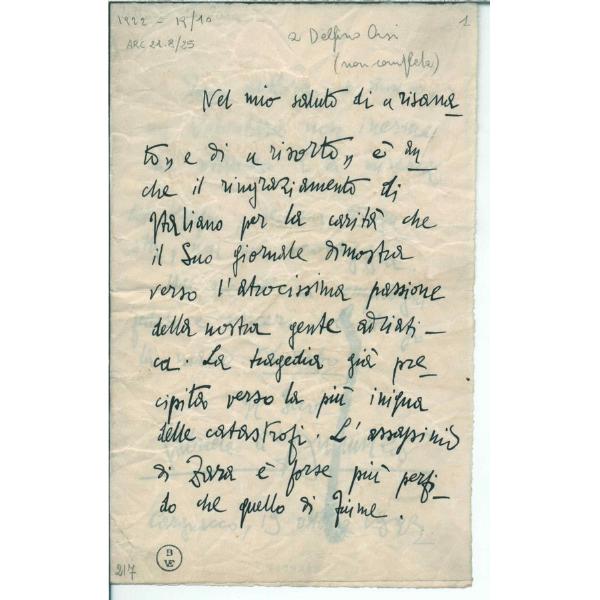 1922 = 19/10
ARC 21.8/25
1
a Delfino Orsi
(non completa)
Nel mio saluto di « risana
to » e di « risorto » è an
che il ringraziamento di
Italiano per la carità che
il Suo giornale dimostra
verso l'atrocissima passione
della nostra gente adriati-
ca. La tragedia già pre-
cipita verso la più iniqua
delle catastrofi. L'assassinio
di Zara è forse più perfi-
do che quello di Fiume.
217
B
VE